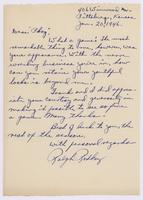 Pittsburg, Kansas
Jan. 20, 1946.
Dear "Phog":
What a game! The most
remarkable thing to me, however, was
your appearance. With the nerve
wracking business you're in, how
can you retain your youthful
looks is beyond me.
and I did appre-
ciate your courtesy and generosity in
making it possible to see so fine
a game. Many thanks.
Best of luck to you the
rest of the season.
With personal regards
Ralph